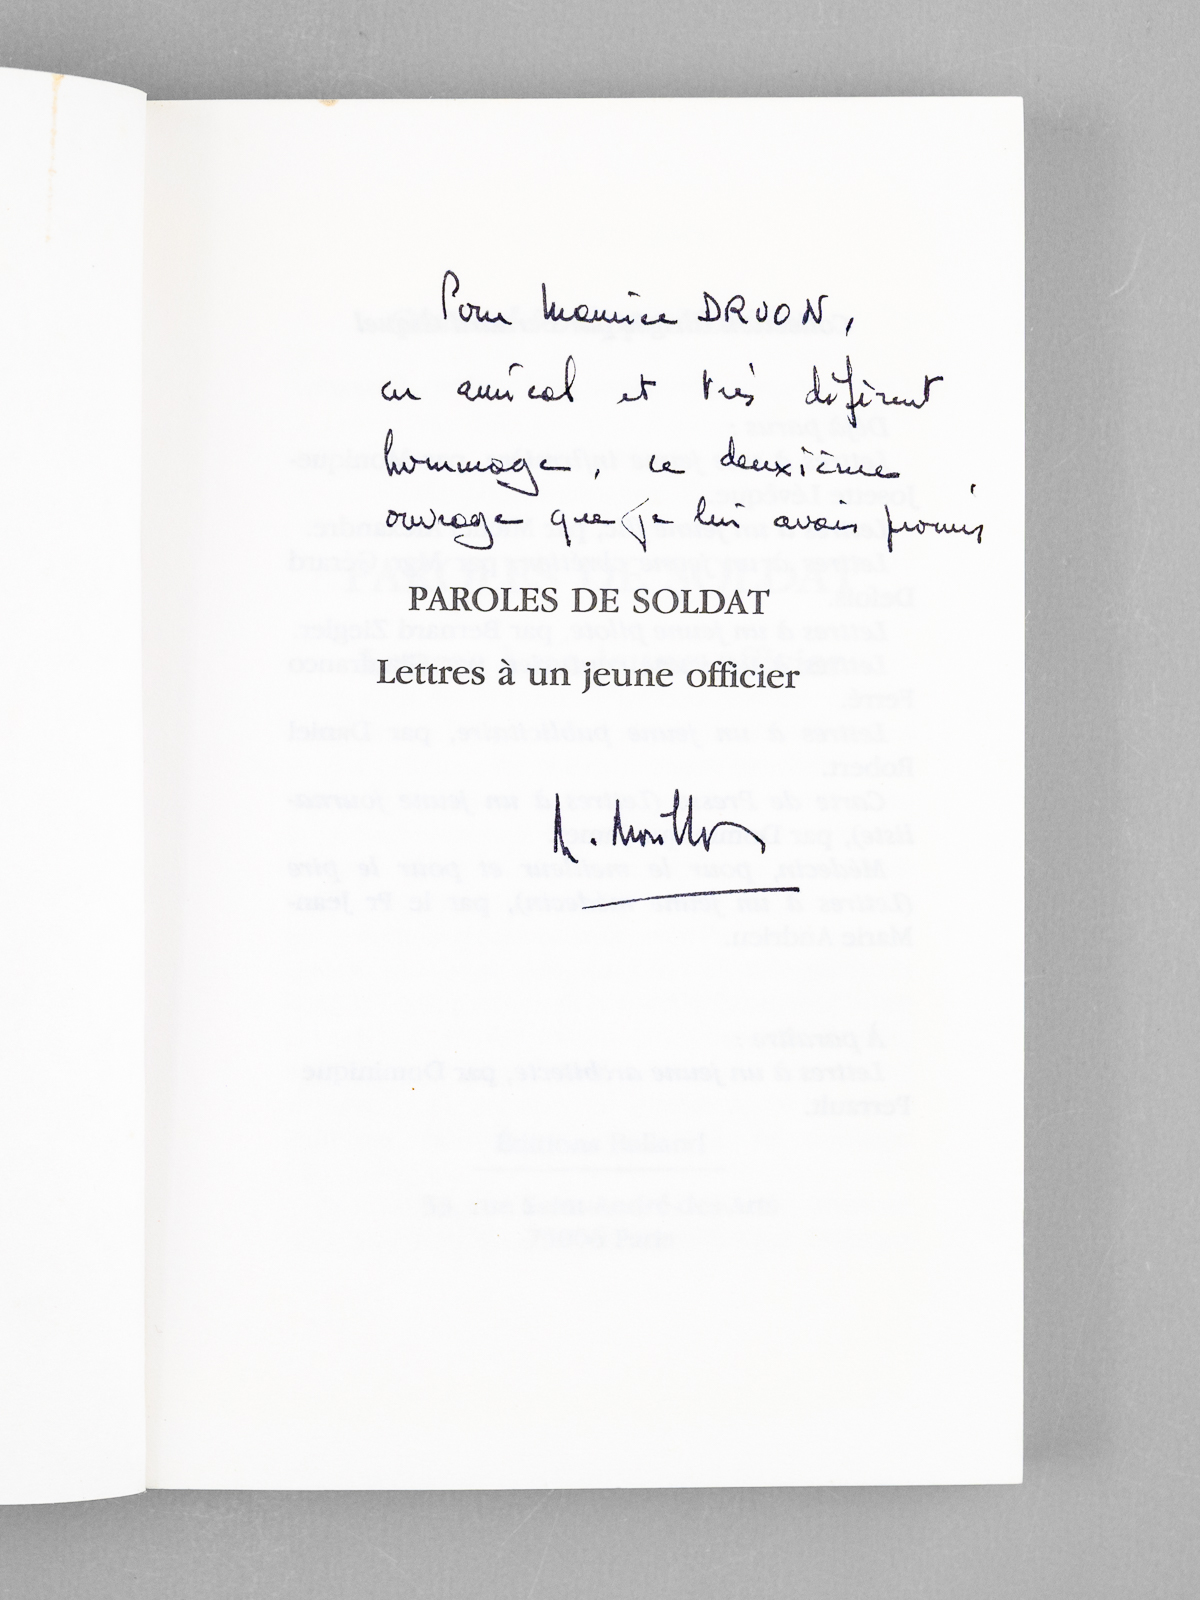 Pour Maurice DRUON,
en amical et très déférent
hommage, ce deuxième
ouvrage que je lui avais promis
PAROLES DE SOLDAT
Lettres à un jeune officier